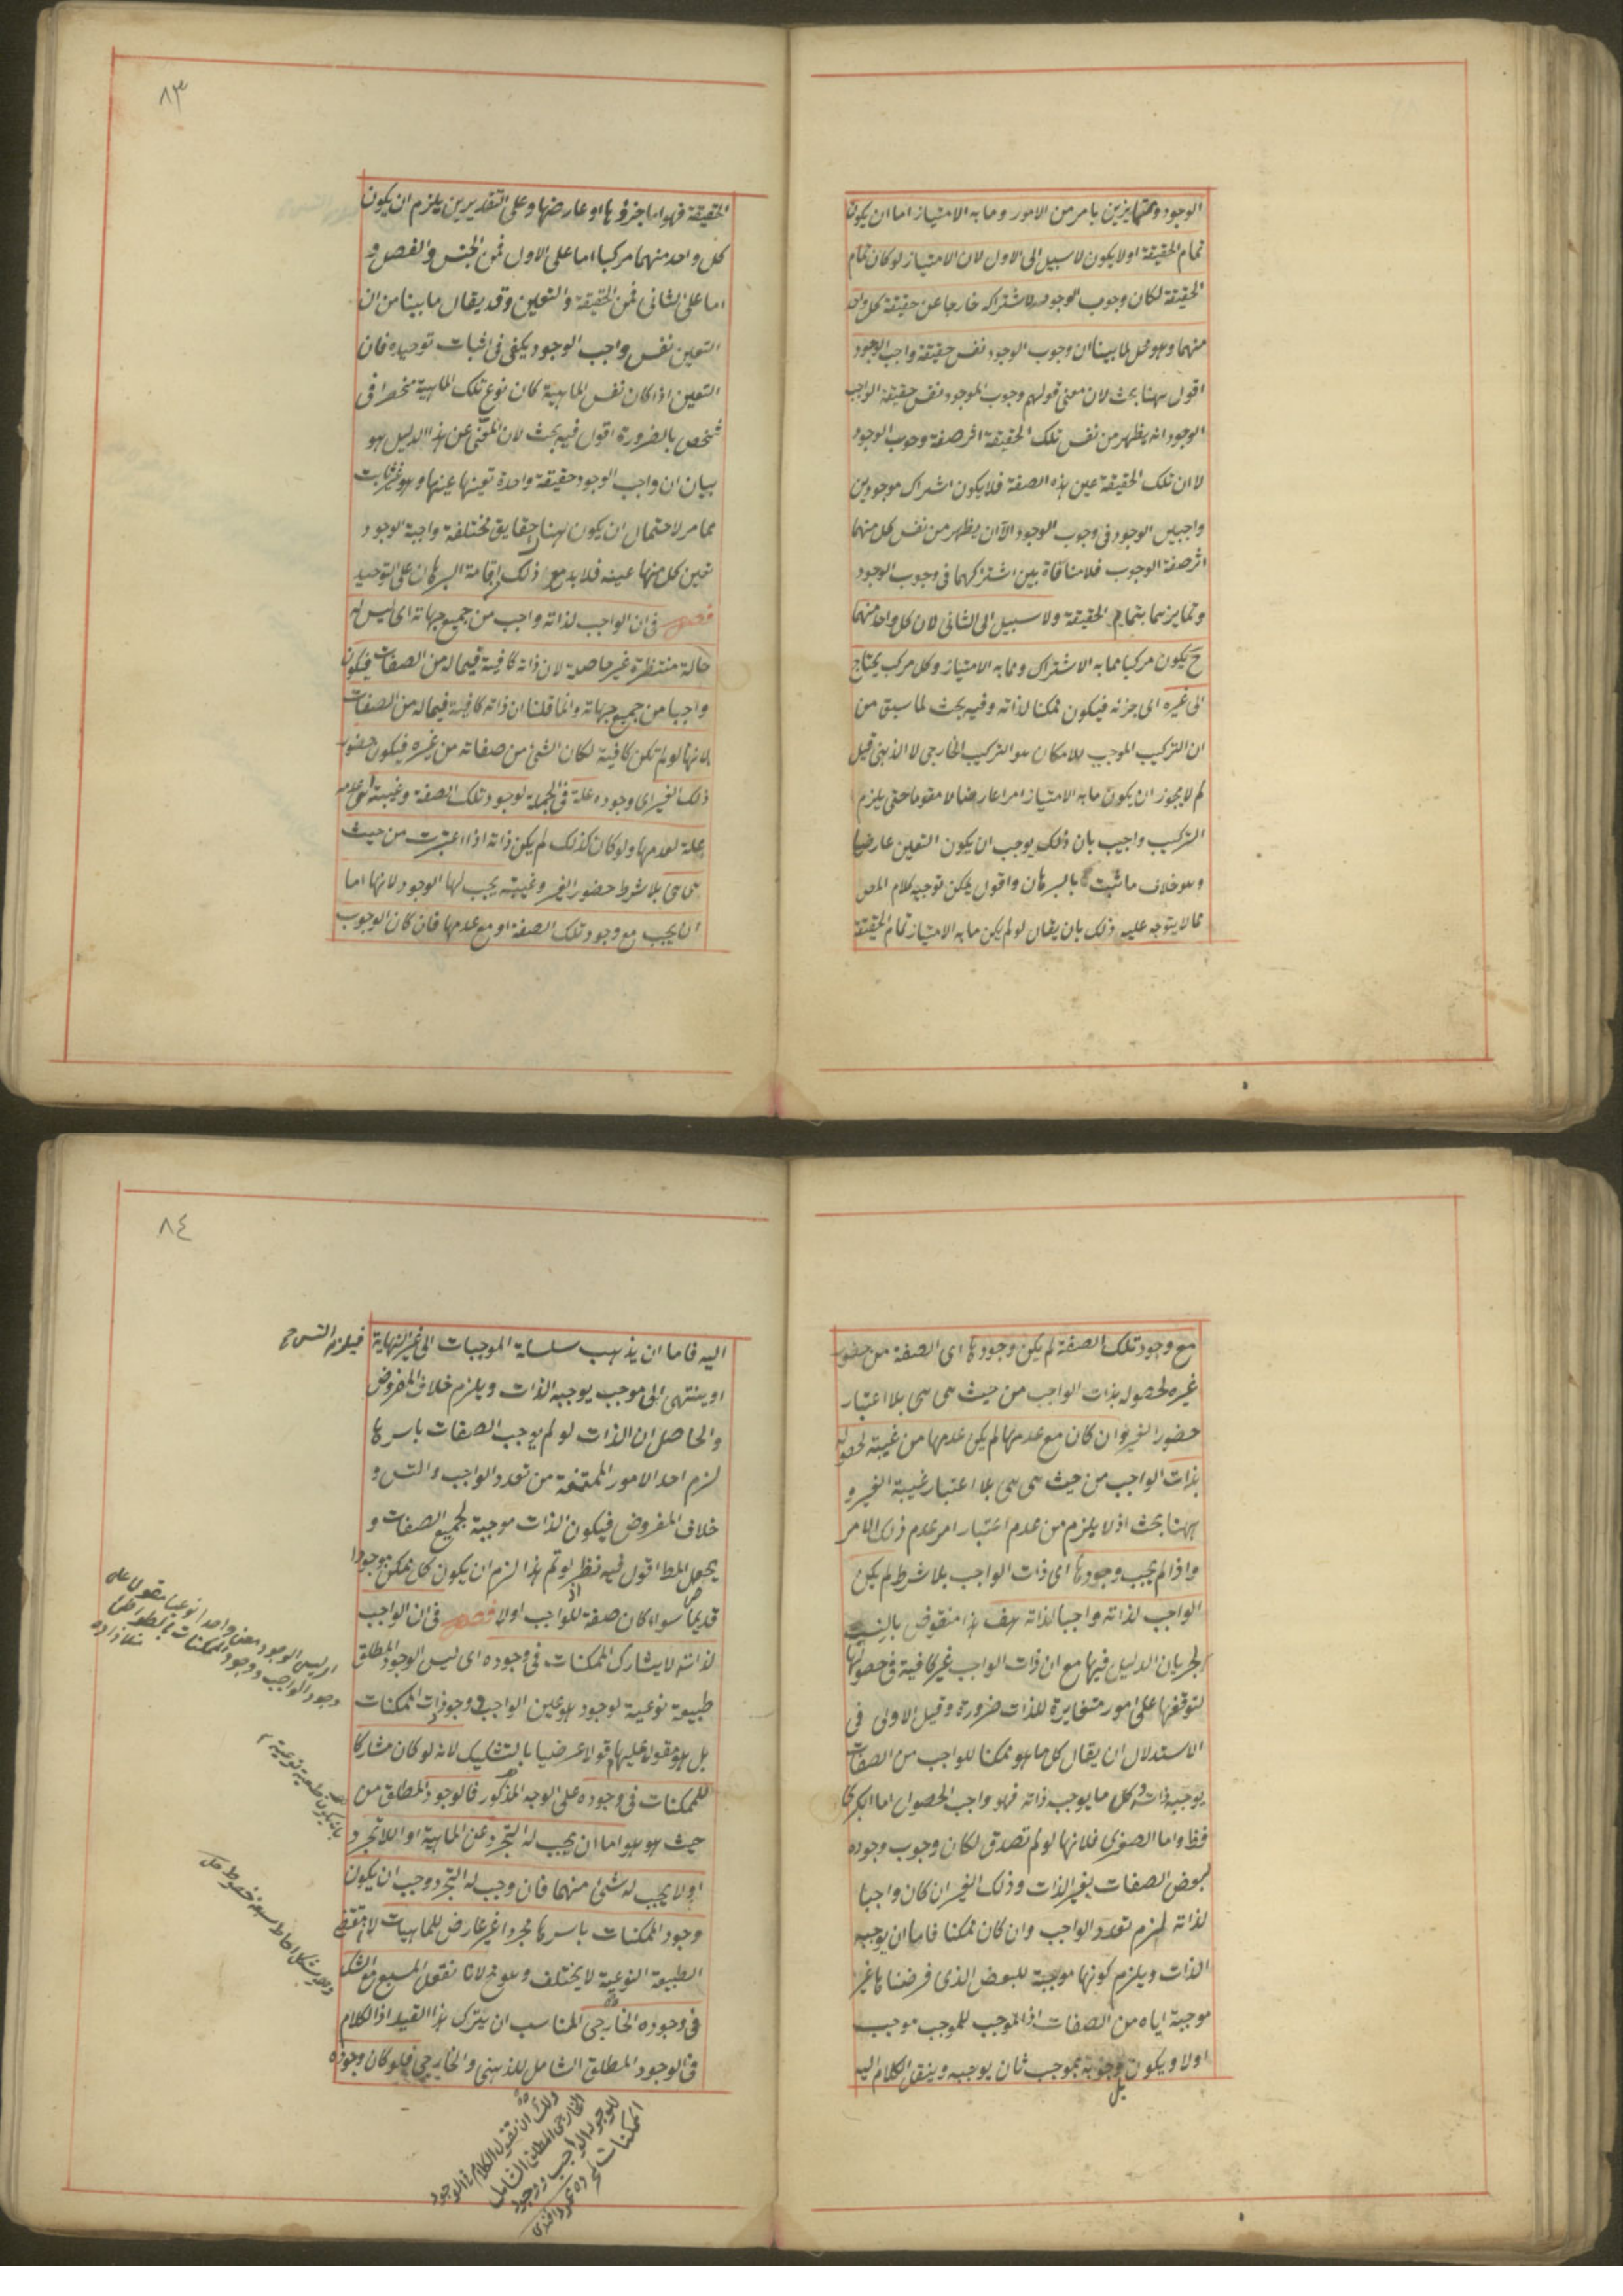 الوجود ومتمايزين بامر من الامور وما به الامتياز اما ان يكون
تمام الحقيقة اولا يكون لا سبيل الى الاول لان الامتياز لو كان تمام
الحقيقة لكان وجوب الوجود لاشتراكه خارجا عن حقيقة كل واحد
منهما وهو مح لما بينا ان وجوب الوجود نفس حقيقة واجب الوجود
اقول ههنا بحث لان معنى قولهم وجوب الوجود نفس حقيقة الواجب
الوجود انه يظهر من نفس تلك الحقيقة اثر صفة وجوب الوجود
لا ان تلك الحقيقة عين هذه الصفة فلا يكون اشتراك موجودين
واجبي الوجود في وجوب الوجود الا ان يظهر من نفس كل منهما
اثر صفة الوجوب فلا منافاة بين اشتراكهما في وجوب الوجود
وتمايزهما بتمام الحقيقة ولا سبيل الى الثاني لان كل واحد منهما
ح يكون مركبا مما به الاشتراك ومما به الامتياز وكل مركب يحتاج
الى غيره اى جزئه فيكون ممكنا لذاته وفيه بحث لما سبق من
ان التركيب الموجب للامكان هو التركيب الخارجى لا الذهنى قيل
لم لا يجوز ان يكون ما به الامتياز امرا عارضا لا مقوما حتى يلزم
التركيب واجيب بان ذلك يوجب ان يكون التعين عارضا
وهو خلاف ما ثبت بالبرهان واقول يمكن توجيه كلام المص
بما لا يتوجه عليه ذلك بان يقال لو لم يكن ما به الامتياز تمام الحقيقة
٨٣
الحقيقة فهو اما جزؤها او عارضها وعلى التقديرين يلزم ان يكون
كل واحد منهما مركبا اما على الاول فمن الجنس والفصل و
اما على الثاني فمن الحقيقة والتعين وقد يقال ما بينا من ان
التعين نفس واجب الوجود يكفى في اثبات توحيده فان
التعين اذا كان نفس الماهية كان نوع تلك الماهية منحصرا في
شخص بالضرورة اقول فيه بحث لان المعنى عن هذا الدليل هو
بيان ان واجب الوجود حقيقة واحدة تعينها عينها وهو غير ثابت
مما مر لاحتمال ان يكون هناك حقايق مختلفة واجبة الوجود
تعين كل منها عينه فلا بد مع ذلك اقامة البرهان على التوحيد
فصل في ان الواجب لذاته واجب من جميع جهاته اى ليس له
حالة منتظرة غير حاصلة لان ذاته كافية فيما له من الصفات فيكون
واجبا من جميع جهاته وانما قلنا ان ذاته كافية فيما له من الصفات
لانها لو لم تكن كافية لكان شئ من صفاته من غيره فيكون حضور
ذلك الغير اى وجوده علة في الجملة لوجود تلك الصفة وغيبته اى عدمه
علة لعدمها ولو كان كذلك لم يكن ذاته اذا اعتبرت من حيث
هى هى بلا شرط حضور الغير وغيبته يجب لها الوجود لانها اما
ان يجب مع وجود تلك الصفة او مع عدمها فان كان الوجوب
مع وجود تلك الصفة لم يكن وجودها اى الصفة من حضور
غيره لحصوله بذات الواجب من حيث هى هى بلا اعتبار
حضور الغير وان كان مع عدمها لم يكن عدمها من غيبته لحصوله
بذات الواجب من حيث هى هى بلا اعتبار غيبة الغير و
ههنا بحث اذ لا يلزم من عدم اعتبار امر عدم ذلك الامر
واذا لم يجب وجودها اى ذات الواجب بلا شرط لم يكن
الواجب لذاته واجبا لذاته هف هذا منقوض بالنسب
لجريان الدليل فيها مع ان ذات الواجب غير كافية في حصولها
لتوقفها على امور متغايرة للذات ضرورة وقيل الاولى في
الاستدلال ان يقال كل ما هو ممكن للواجب من الصفات
يوجبه ذاته وكل ما يوجب ذاته فهو واجب الحصول اما الكبرى
فظ واما الصغرى فلانها لو لم تصدق لكان وجوب وجوده
لبعض الصفات بغير الذات وذلك الغير ان كان واجبا
لذاته لزم تعدد الواجب وان كان ممكنا فاما ان يوجبه
الذات ويلزم كونها موجبة للبعض الذى فرضناها غير
موجبة اياه من الصفات اذ الموجب للموجب موجب
اولا ويكون وجوبه بموجب ثان يوجبه وينقل الكلام اليه
بل
٨٤
اليه فاما ان يذهب سلسلة الموجبات الى غير النهاية فيلزم التس ح
او ينتهى الى موجب يوجبه الذات ويلزم خلاف المفروض
والحاصل ان الذات لو لم يوجب الصفات باسرها
لزم احد الامور الممتنعة من تعدد الواجب والتس و
خلاف المفروض فيكون الذات موجبة لجميع الصفات و
يحصل المط اقول فيه نظر لو تم هذا لزم ان يكون كل ممكن موجودا
قديما سواء كان صفة للواجب اولا فصل في ان الواجب
لذاته لا يشارك الممكنات في وجوده اى ليس الوجود المطلق
طبيعة نوعية لوجود هو عين الواجب ووجودات الممكنات
بل هو مقول عليهما قولا عرضيا بالتشكيك لانه لو كان مشاركا
للممكنات في وجوده على الوجه المذكور فالوجود المطلق من
حيث هو هو اما ان يجب له التجرد عن الماهية او اللاتجرد
او لا يجب له شئ منهما فان وجب له التجرد وجب ان يكون
وجود الممكنات باسرها مجردا غير عارض للماهيات لان مقتضى
الطبيعة النوعية لا يختلف وهو مح لانا نعقل المسبع مع الشك
في وجوده الخارجى المناسب ان يترك هذا القيد اذ الكلام
في الوجود المطلق الشامل للذهنى والخارجى فلو كان وجوده
اى ليس الوجود معنى واحدا نوعيا مقول على
وجود الواجب ووجود الممكنات
بان يكون طبيعة نوعية
وهو شكل احاط به سبعة خطوط
ولك ان تقول الكلام في الوجود
الخارجى المطلق الشامل
للوجود الواجب ووجود
الممكنات